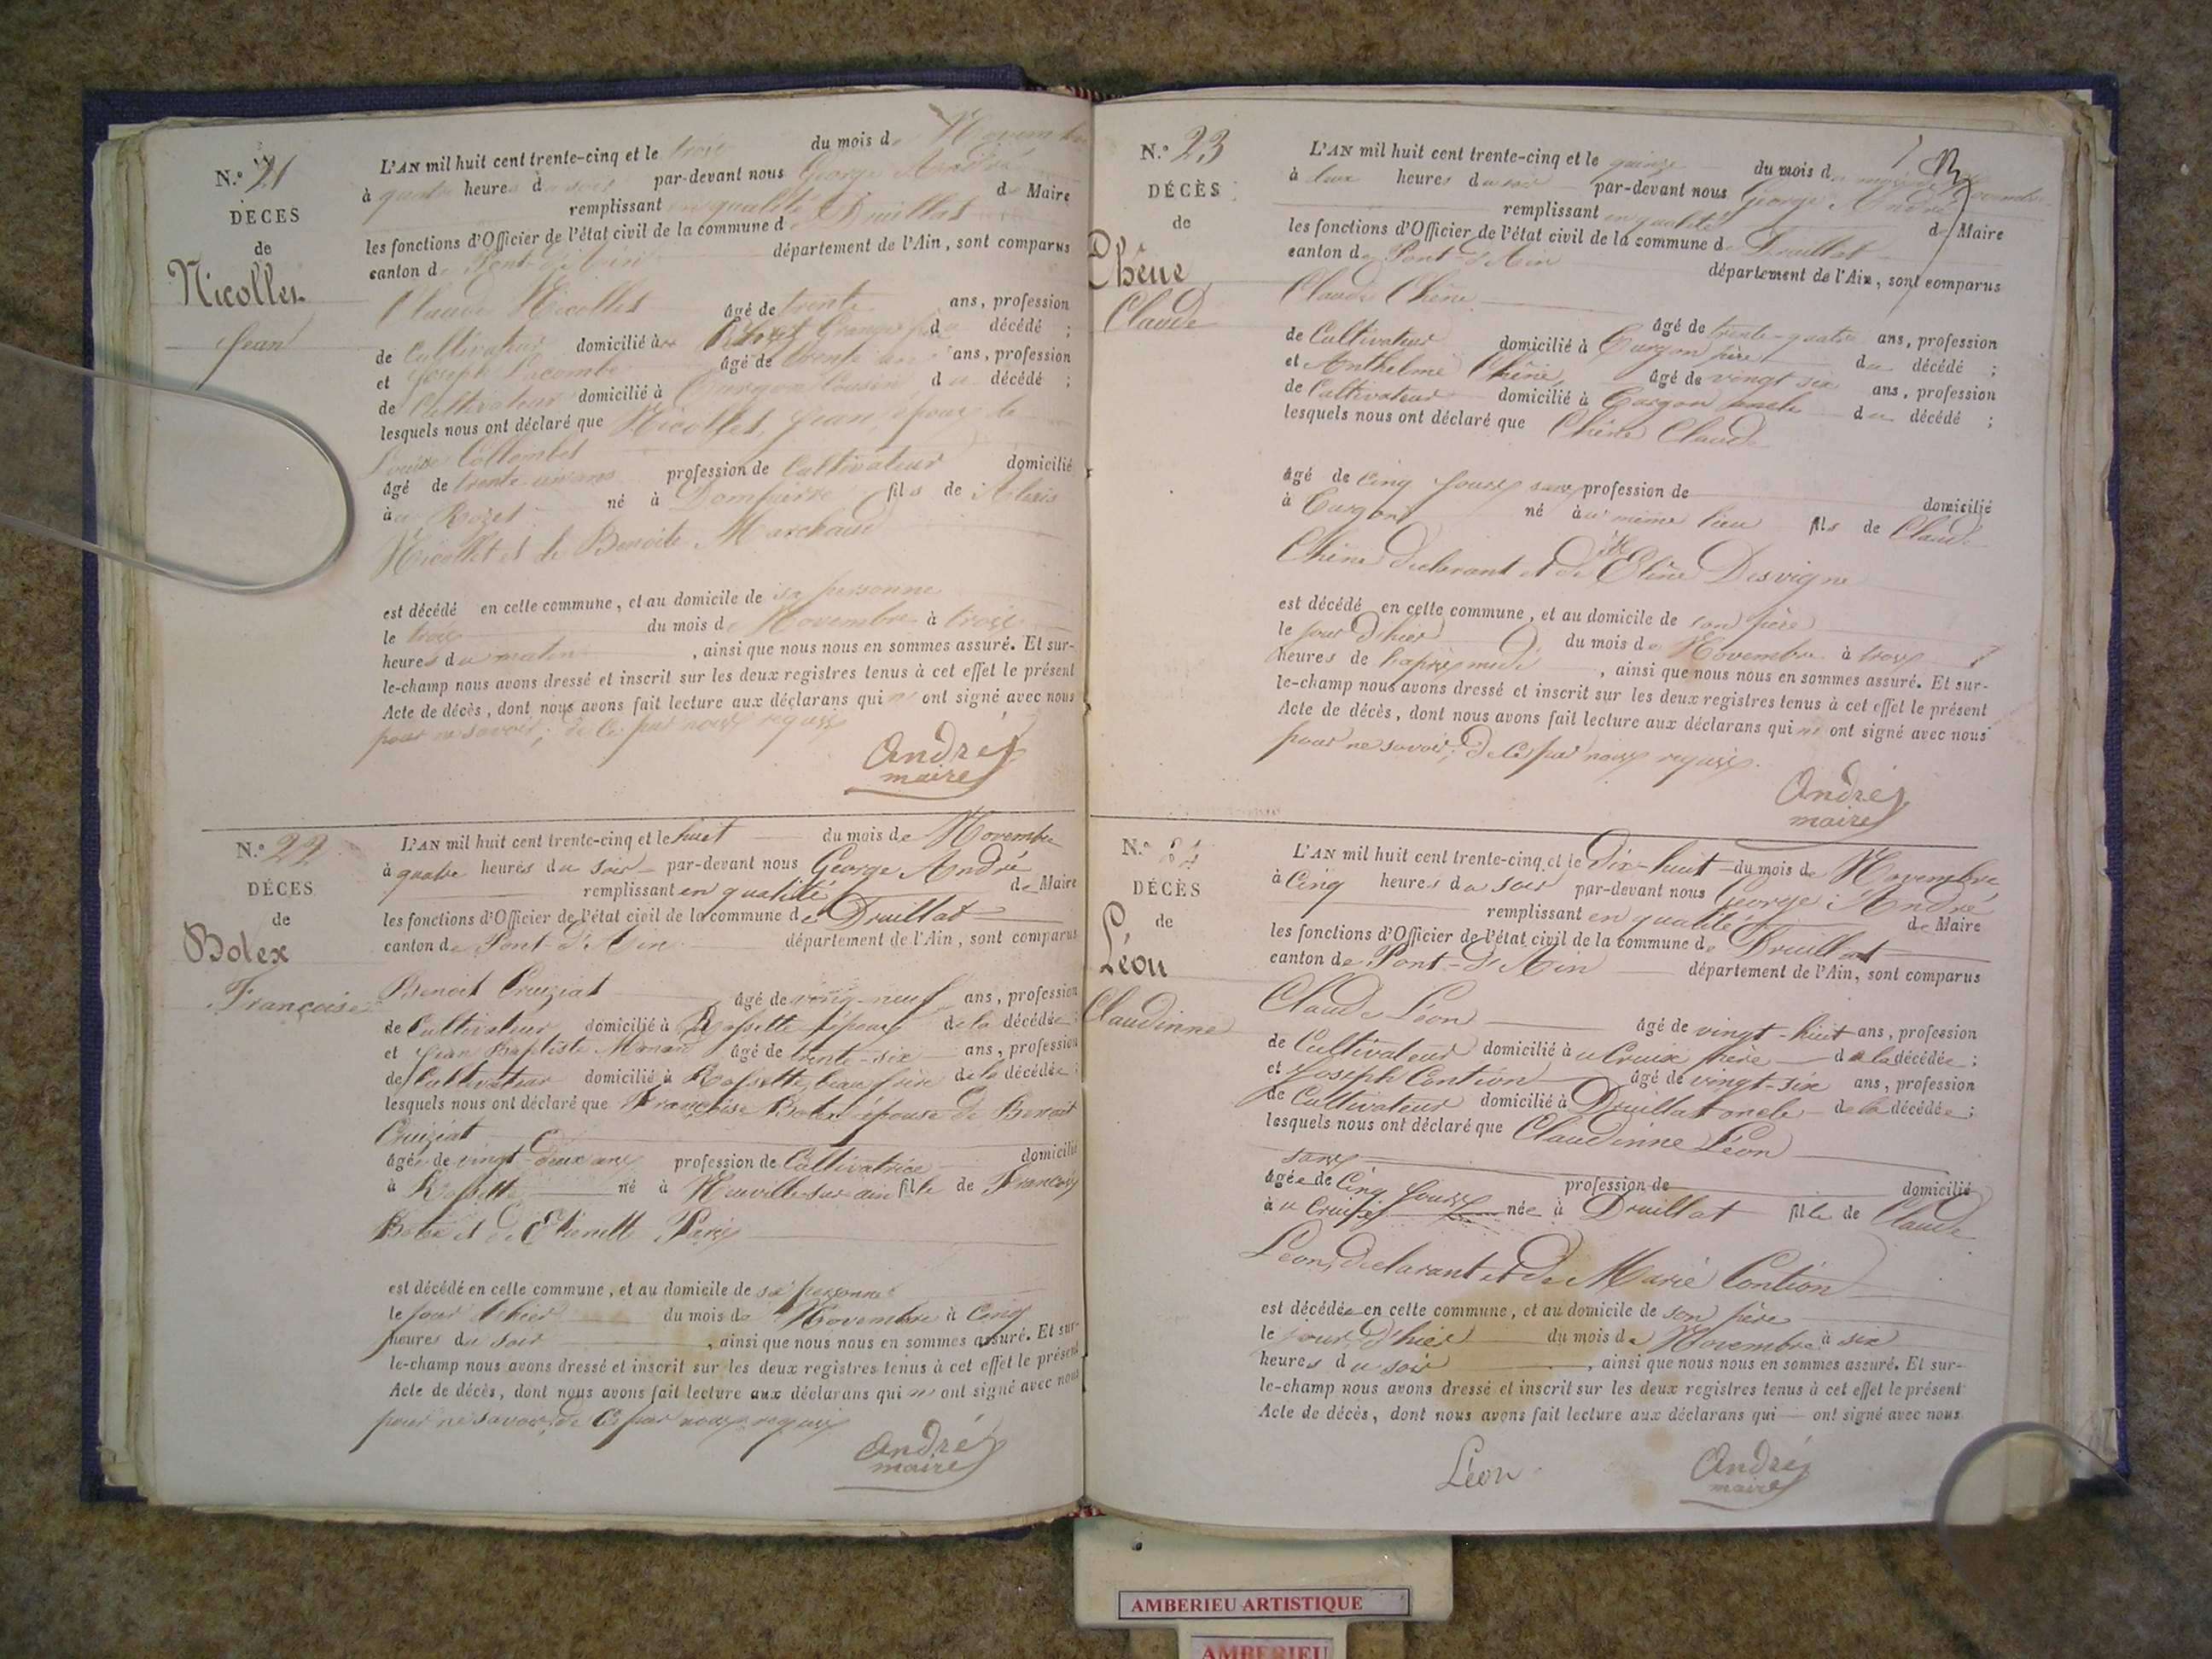 N.° 21
DÉCES
de
Nicollet
Jean
L'AN mil huit cent trente-cinq et le trois du mois de Novembre
à quatre heures du soir par-devant nous George André
remplissant en qualité de Maire
les fonctions d'Officier de l'état civil de la commune de Druillat
canton de Pont-d'Ain département de l'Ain, sont comparus
Claude Nicollet âgé de trente ans, profession
de Cultivateur domicilié à du décédé ;
et Joseph Lacombe âgé de trente un ans, profession
de Cultivateur domicilié à Cousin du décédé ;
lesquels nous ont déclaré que Nicollet, Jean, époux de
Louise Collombet
âgé de trente-un ans profession de Cultivateur domicilié
au Rozet né à Dompierre fils de Alexis
Nicollet et de Benoite Marchand
est décédé en cette commune, et au domicile de sa personne
le trois du mois de Novembre à trois
heures du matin, ainsi que nous nous en sommes assuré. Et sur-
le-champ nous avons dressé et inscrit sur les deux registres tenus à cet effet le présent
Acte de décès, dont nous avons fait lecture aux déclarans qui n' ont signé avec nous
pour ne savoir, de ce par nous requis
André
maire
N.° 22
DÉCES
de
Bolex
Françoise
L'AN mil huit cent trente-cinq et le huit du mois de Novembre
à quatre heures du soir par-devant nous George André
remplissant en qualité de Maire
les fonctions d'Officier de l'état civil de la commune de Druillat
canton de Pont-d'Ain département de l'Ain, sont comparus
Benoit Cruiziat âgé de vingt-neuf ans, profession
de Cultivateur domicilié à Rossette époux de la décédée ;
et Jean Baptiste âgé de trente-six ans, profession
de Cultivateur domicilié à Rossette, beau frère de la décédée ;
lesquels nous ont déclaré que Françoise Bolex épouse de Benoit
Cruiziat
âgée de vingt-deux ans profession de Cultivatrice domicilié
à Rossette né à Neuville sur ain fille de François
Bolex et de Etienette
est décédé en cette commune, et au domicile de sa personne
le jour d'hier du mois de Novembre à Cinq
heures du soir, ainsi que nous nous en sommes assuré. Et sur-
le-champ nous avons dressé et inscrit sur les deux registres tenus à cet effet le présent
Acte de décès, dont nous avons fait lecture aux déclarans qui n' ont signé avec nous
pour ne savoir, de ce par nous requis
André
maire
N.° 23
DÉCÈS
de
Chêne
Claude
L'AN mil huit cent trente-cinq et le quinze du mois de Novembre
à deux heures du soir par-devant nous George André
remplissant en qualité de Maire
les fonctions d'Officier de l'état civil de la commune de Druillat
canton de Pont-d'Ain département de l'Ain, sont comparus
Claude Chêne âgé de trente-quatre ans, profession
de Cultivateur domicilié à Turgon père du décédé ;
et Anthelme Chêne, âgé de vingt six ans, profession
de Cultivateur domicilié à Turgon oncle du décédé ;
lesquels nous ont déclaré que Chêne Claude
âgé de Cinq jours sans profession de domicilié
à Turgon né au même lieu fils de Claude
Chêne déclarant et de Eline Desvigne
est décédé en cette commune, et au domicile de son père
le jour d'hier du mois de Novembre à trois
heures de l'après midi, ainsi que nous nous en sommes assuré. Et sur-
le-champ nous avons dressé et inscrit sur les deux registres tenus à cet effet le présent
Acte de décès, dont nous avons fait lecture aux déclarans qui n' ont signé avec nous
pour ne savoir, de ce par nous requis.
André
maire
N.° 24
DÉCÈS
de
Léon
Claudinne
L'AN mil huit cent trente-cinq et le Dix-huit du mois de Novembre
à Cinq heures du soir par-devant nous George André
remplissant en qualité de Maire
les fonctions d'Officier de l'état civil de la commune de Druillat
canton de Pont-d'Ain département de l'Ain, sont comparus
Claude Léon âgé de vingt-huit ans, profession
de Cultivateur domicilié à u Cruix père de la décédée ;
et Joseph Contion âgé de vingt-six ans, profession
de Cultivateur domicilié à Druillat oncle de la décédée ;
lesquels nous ont déclaré que Claudinne Léon
sans
âgée de Cinq jours profession de domicilié
à u née à Druillat fille de Claude
Léon, déclarant et de Marie Contion
est décédée en cette commune, et au domicile de son père
le jour d'hier du mois de Novembre à six
heures du soir, ainsi que nous nous en sommes assuré. Et sur-
le-champ nous avons dressé et inscrit sur les deux registres tenus à cet effet le présent
Acte de décès, dont nous avons fait lecture aux déclarans qui ont signé avec nous
Léon
André
maire
AMBERIEU ARTISTIQUE
AMBERIEU